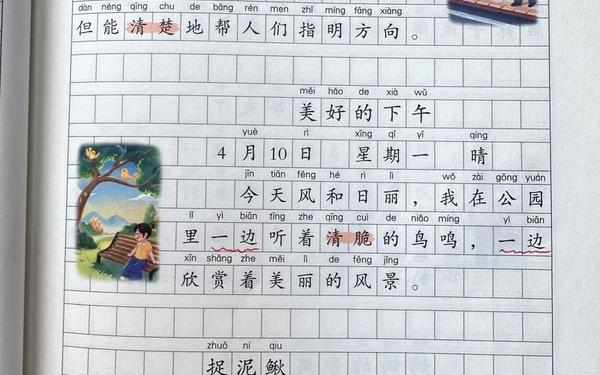 dàn néng qīng chu de bāng rén men zhǐ míng fāng xiàng
但能清楚地帮人们指明方向。
měi hǎo de xià wǔ
美好的下午
yuè rì xīng qī yī qíng
4月10日 星期一 晴
jīn tiān fēng hé rì lì wǒ zài gōng yuán
今天风和日丽，我在公园
lǐ yì biān tīng zhe qīng cuì de niǎo míng yì biān
里一边听着清脆的鸟鸣，一边
xīn shǎng zhe měi lì de fēng jǐng
欣赏着美丽的风景。
zhuō ní qiu
捉泥鳅